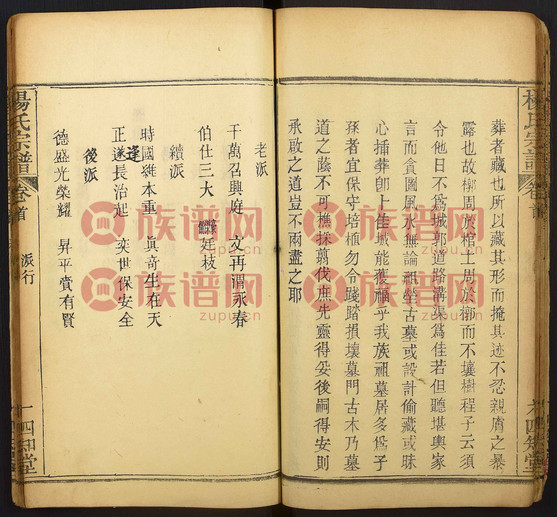 葬者藏也所以藏其形而掩其迹不忍親膚之暴
露也故槨周於棺土周於槨而不壤樹程子云須
令他日不爲城郭道路溝渠爲佳若但聽堪輿家
言而貪圖風水無論飜坐古墓或設計偷藏或昧
心插葬卽卜佳城能獲福乎我族祖墓居多爲子
孫者宜保守培植勿令踐踏損壞墓門古木乃墓
道之蔭不可樵採剪伐庶先靈得妥後嗣得安則
承啟之道豈不兩盡之耶
楊氏宗譜
卷首
四知堂
老派
千萬召興庭 文再謂永春
伯仕三大 廷枝
續派
時逢國維本重 眞竒生在天
正遂長治起 奕世保安全
後派
德盛光榮耀 昇平賞有賢
楊氏宗譜
卷首
派行
一
四知堂
族谱网
zupu.cn
族谱网
zupu.cn
族谱网
zupu.cn
族谱网
zupu.cn